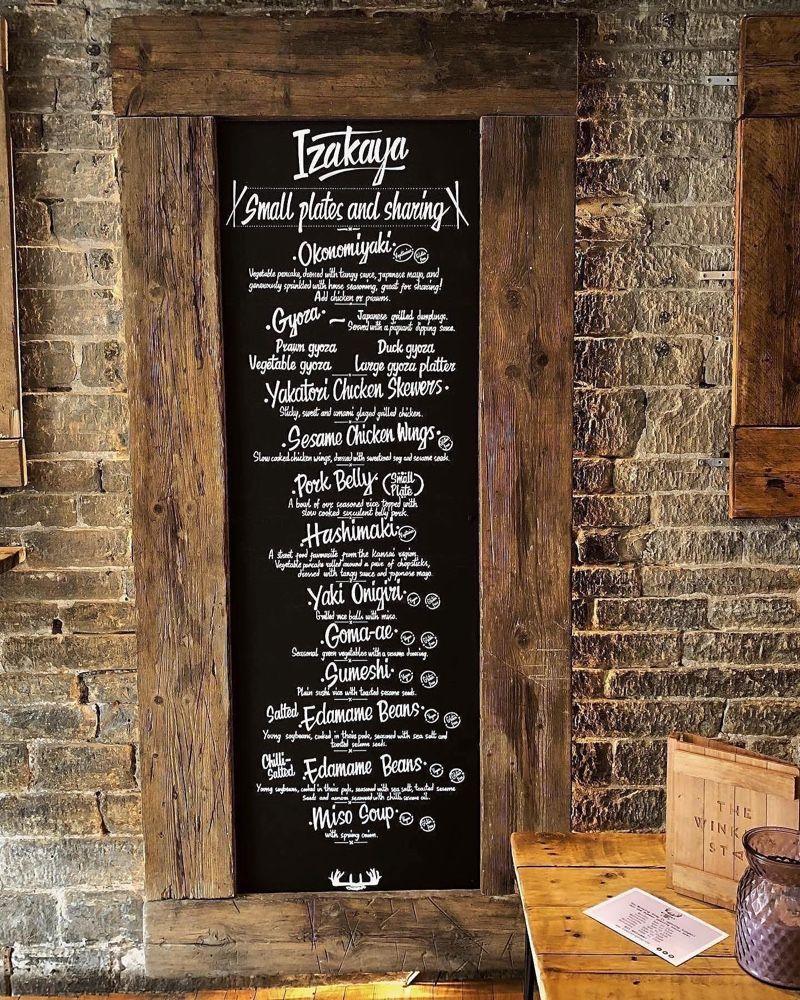 Izakaya
Small plates and sharing
Okonomiyaki
Vegetable pancake, dressed with tangy sauce, japanese mayo, and
generously sprinkled with house seasoning, great for sharing!
Add chicken or prawns.
Gyoza ~ Japanese grilled dumplings.
Served with a piquant dipping sauce.
Prawn gyoza Duck gyoza
Vegetable gyoza Large gyoza platter
Yakatori Chicken Skewers
Sticky, sweet and umami glazed grilled chicken.
Sesame Chicken Wings
Slow cooked chicken wings, dressed with sweetened soy and sesame seeds.
Pork Belly (Small Plate)
A bowl of our seasoned rice topped with
slow cooked succulent belly pork.
Hashimaki
A street food favourite from the kansai region.
Vegetable pancake rolled around a pair of chopsticks,
dressed with tangy sauce and japanese mayo.
Yaki Onigiri
Grilled rice balls with miso.
Goma-ae
Seasonal green vegetables with a sesame dressing.
Sumeshi
Plain sushi rice with toasted sesame seeds.
Salted Edamame Beans
Young soybeans, cooked in their pods, seasoned with sea salt and
toasted sesame seeds.
Chilli-Salted Edamame Beans
Young soybeans, cooked in their pods, seasoned with sea salt, toasted sesame
seeds and aonori, seasoned with chilli sesame oil.
Miso Soup
with spring onion.
THE